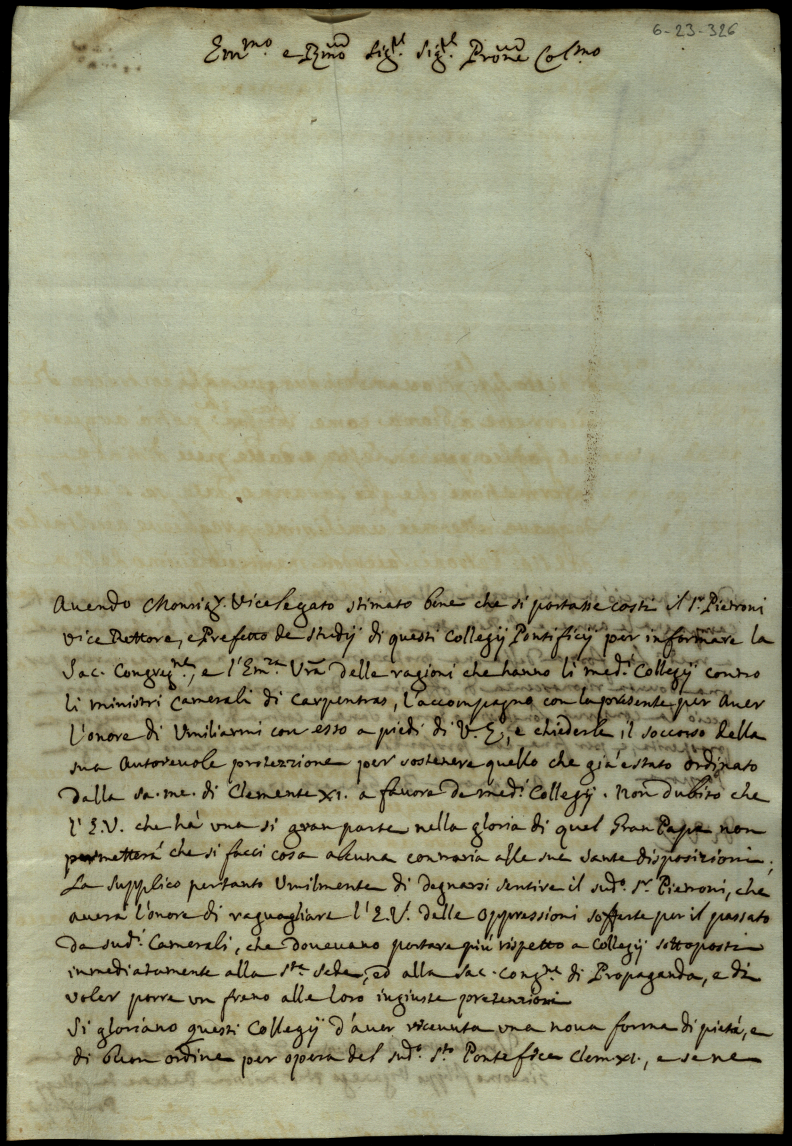 6-23-326
Em.mo e Rmo Sig.r Sig.r Prone Col.mo
Avendo Monsig.r Vicelegato stimato bene che si portasse costì il S.r Pietroni
Vice Rettore, e Prefetto de studij di questi Collegij Pontificij per informare la
Sac. Congreg.ne, e l'Em.za Vra delle ragioni che hanno li med.i Collegij contro
li ministri Camerali di Carpentras, l'accompagno con la presente per aver
l'onore di Umiliarmi con esso a piedi di V. E., e chiederle il soccorso della
sua Autorevole protezzione per sostenere quello che già è stato ordinato
dalla sa. me. di Clemente XI. a favore de med.i Collegij. Non dubito che
l'E.V. che hà una si gran parte nella gloria di quel Gran Papa non
permetterà che si facci cosa alcuna contraria alle sue sante disposizioni;
La supplico pertanto Umilmente di degnarsi sentire il sud.o S.r Pietroni, che
averà l'onore di raguagliare l'E.V. delle oppressioni sofferte per il passato
da sud.i Camerali, che dovevano portare più rispetto a Collegij sottoposti
immediatamente alla S.ta Sede, ed alla Sac. Cong.ne di Propaganda, e di
voler porre un freno alle loro ingiuste pretenzioni
Si gloriano questi Collegij d'aver ricevuta una nova forma di pietà, e
di buon ordine per opera del sud.o S.to Pontefice Clem XI., e se ne